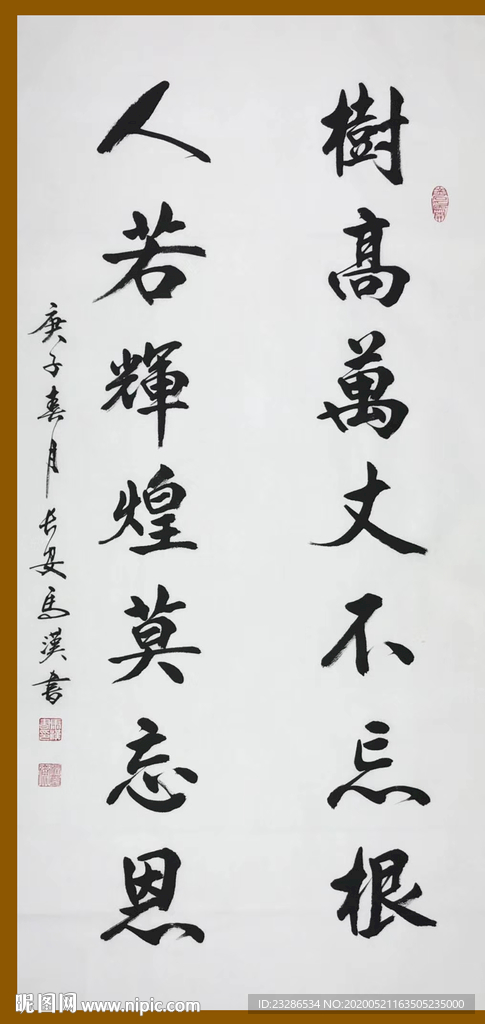 樹高萬丈不忘根
人若輝煌莫忘恩
庚子春月长安馬漢書
昵图网 www.nipic.com
ID:23286534 NO:20200521163505235000